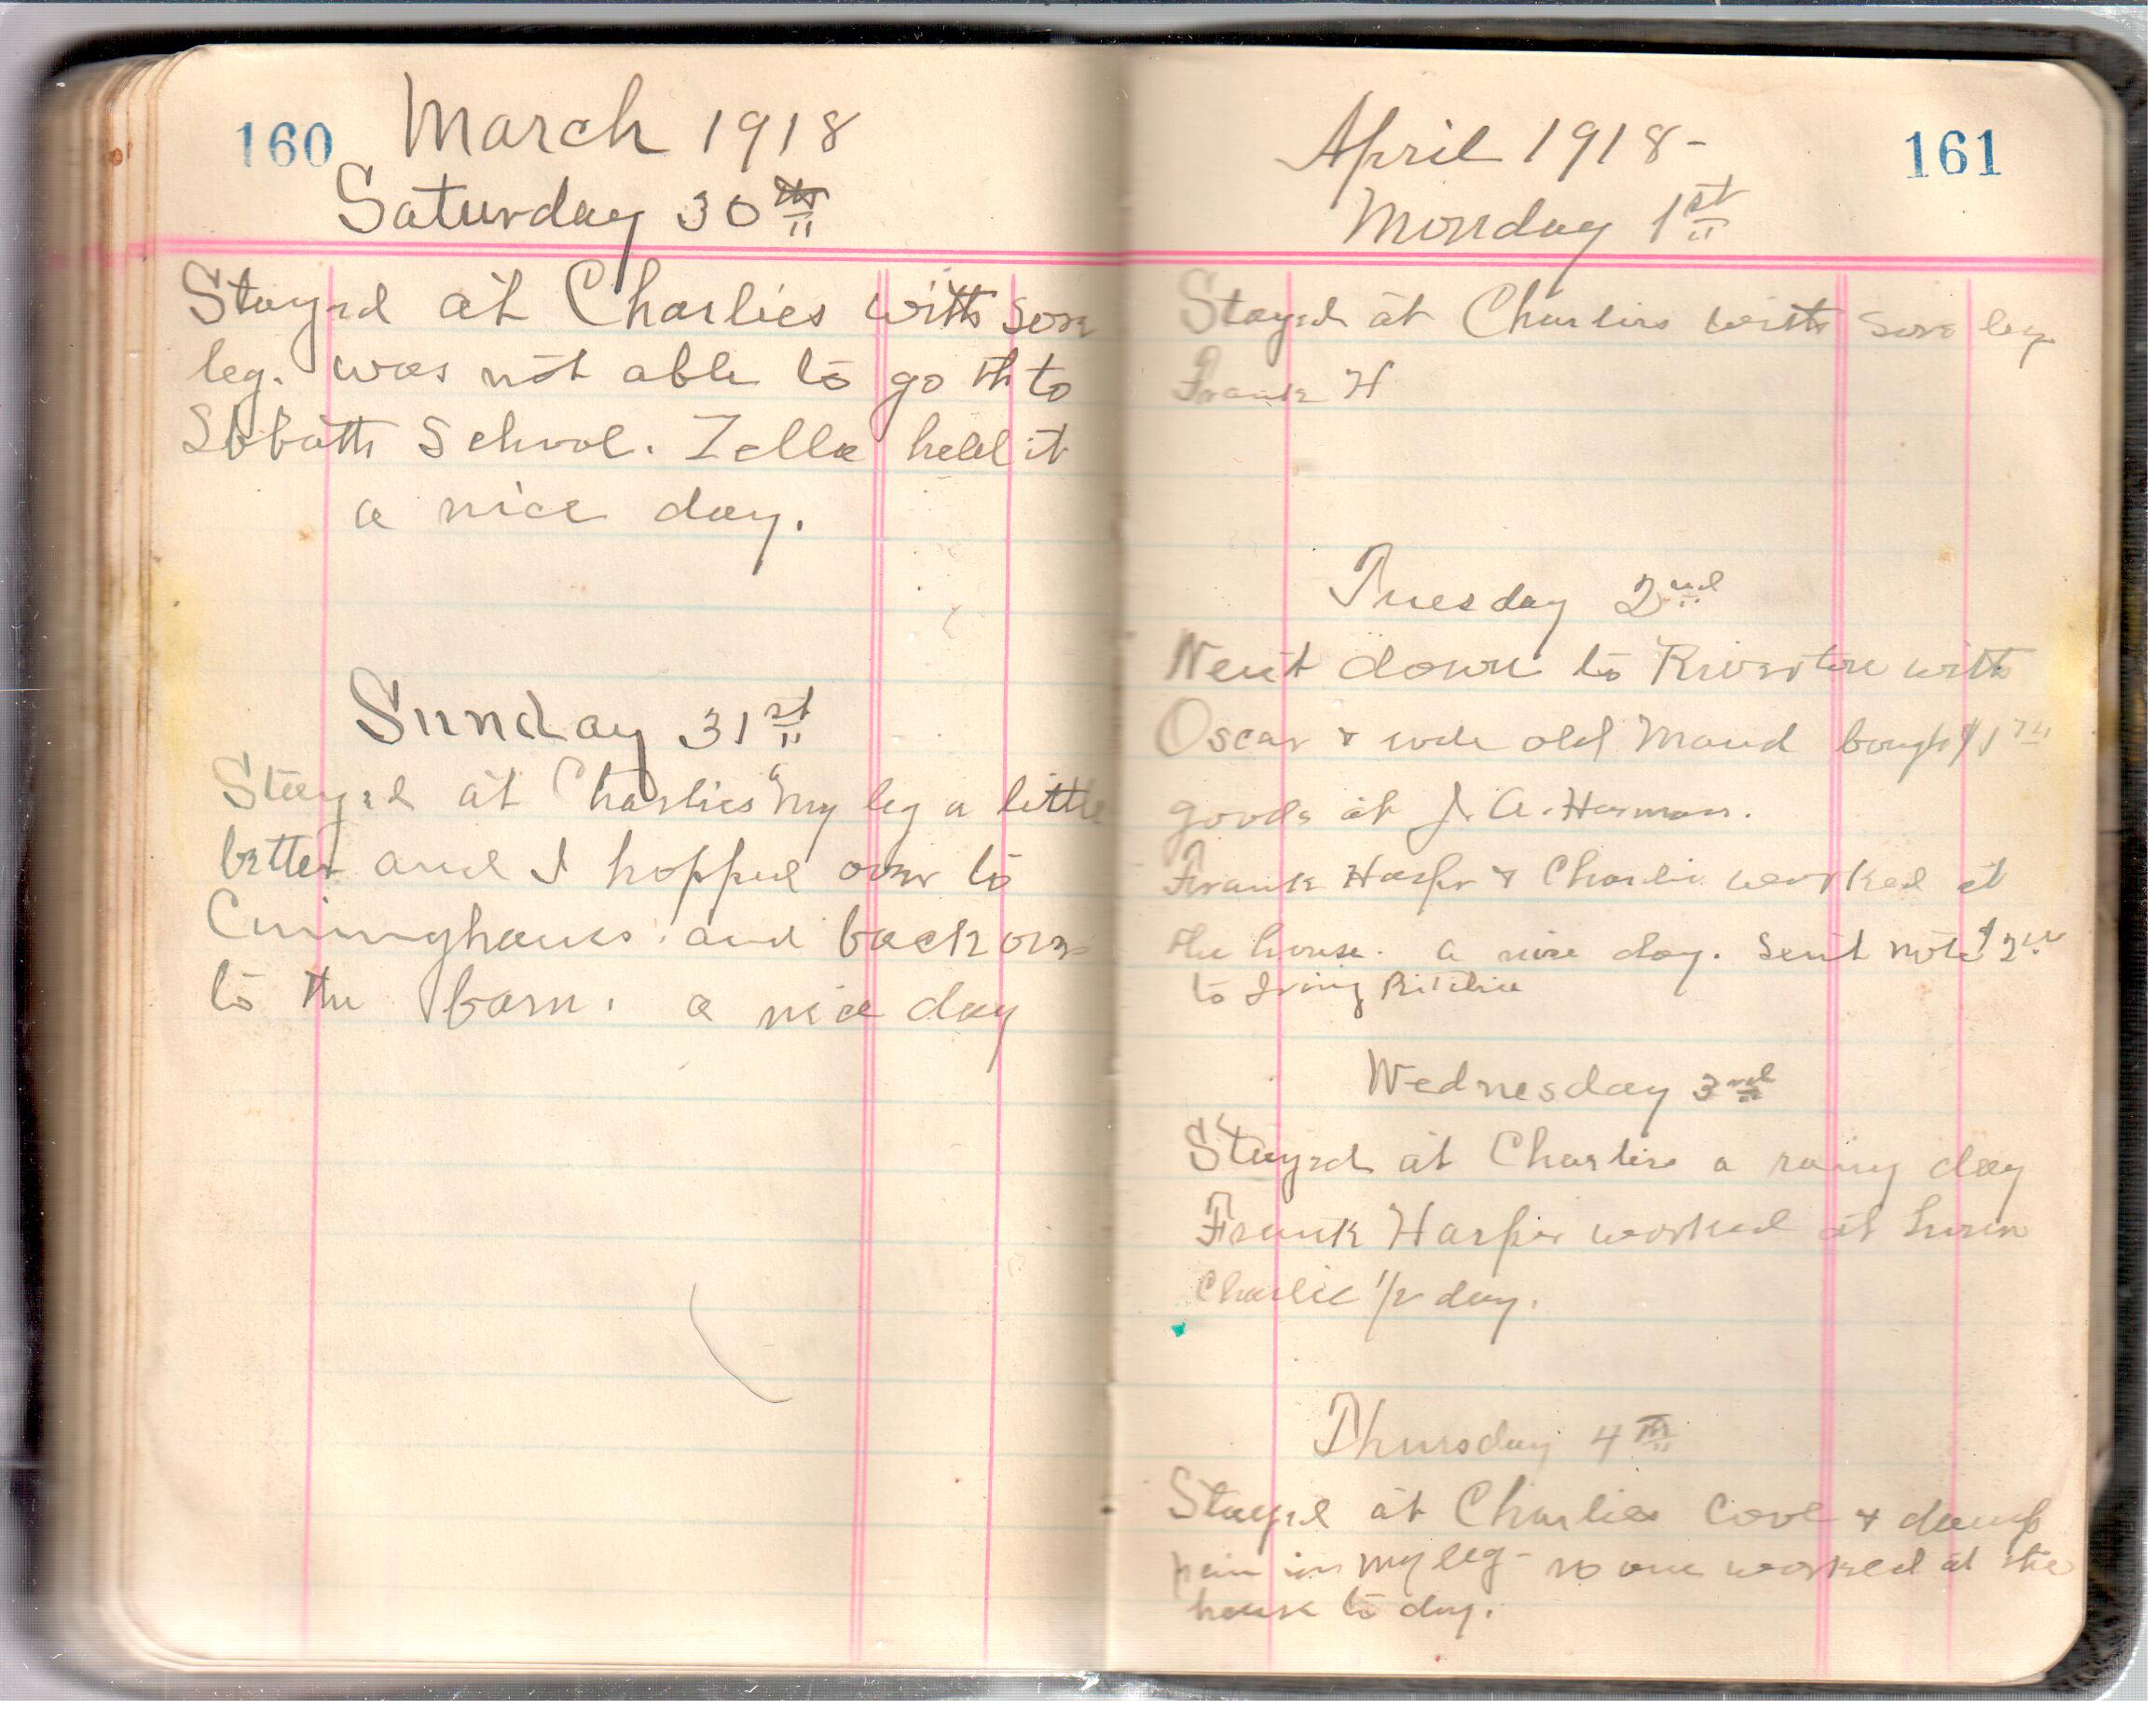 160
March 1918
Saturday 30th
Stayed at Charlies with sore
leg. was not able to go to
Sbbath School. Zella held it
a nice day.
Sunday 31st
Stayed at Charlies my leg a little
better and I hopped over to
Cuninghams. and back over
to the barn. a nice day
April 1918-
161
Monday 1st
Stayed at Charlies with sore leg
Frank H
Tuesday 2nd
Went down to Riverton with
Oscar & rode old Maud bought $1
goods at J. A. Harman.
Frank Harper & Charlie worked at
the house. a nice day. Sent note $2
to Irving Ritchie
Wednesday 3rd
Stayed at Charlies a rainy day
Frank Harper worked at
Charlie 1/2 day.
Thursday 4th
Stayed at Charlies Cool & damp
pain in my leg - no one worked at the
house to day.